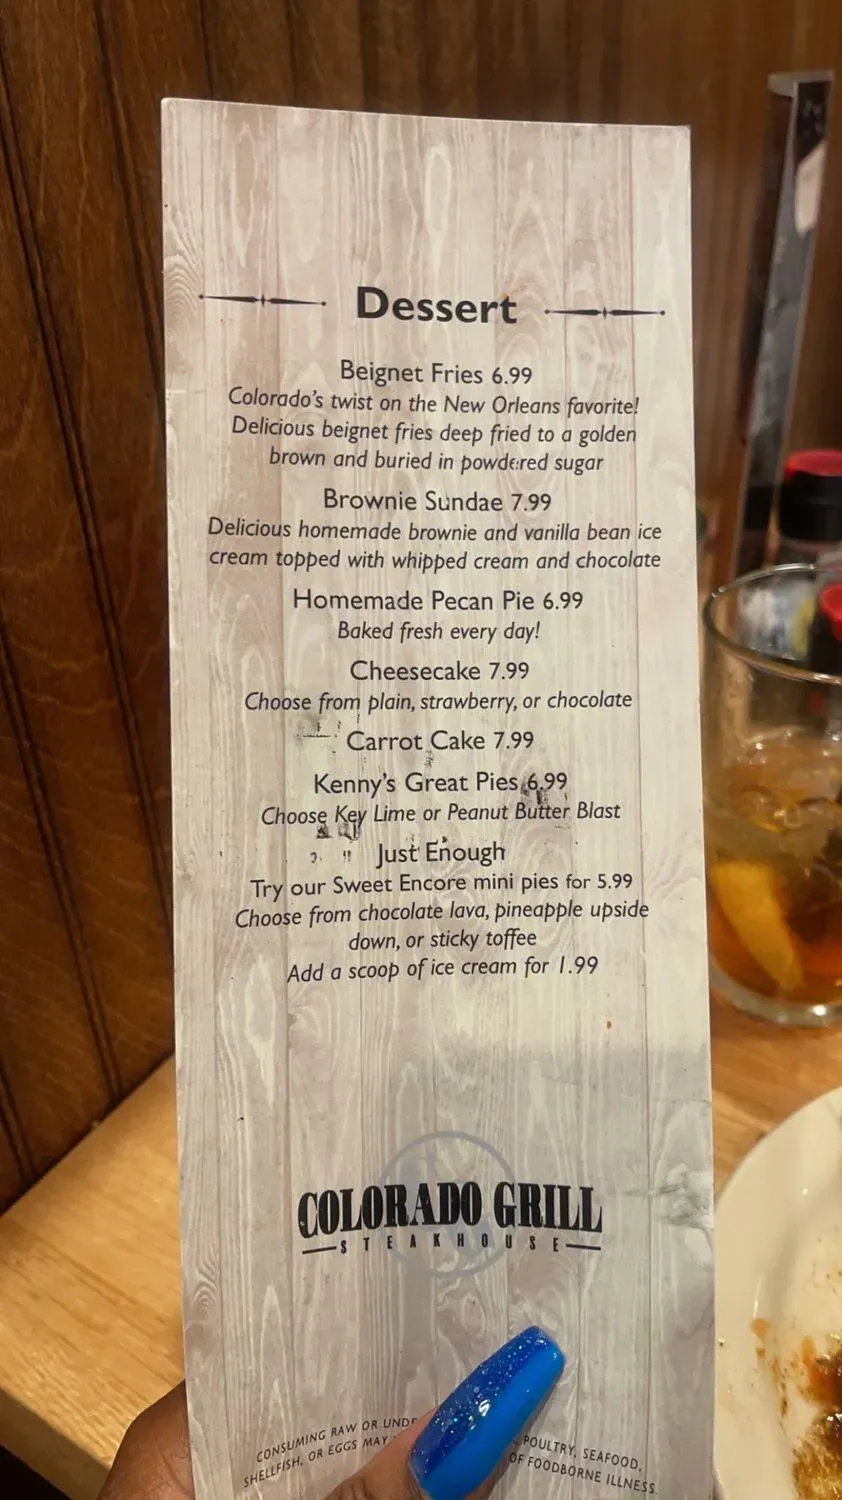 Dessert
Beignet Fries 6.99
Colorado's twist on the New Orleans favorite!
Delicious beignet fries deep fried to a golden
brown and buried in powdered sugar
Brownie Sundae 7.99
Delicious homemade brownie and vanilla bean ice
cream topped with whipped cream and chocolate
Homemade Pecan Pie 6.99
Baked fresh every day!
Cheesecake 7.99
Choose from plain, strawberry, or chocolate
Carrot Cake 7.99
Kenny's Great Pies 6.99
Choose Key Lime or Peanut Butter Blast
Just Enough
Try our Sweet Encore mini pies for 5.99
Choose from chocolate lava, pineapple upside
down, or sticky toffee
Add a scoop of ice cream for 1.99
COLORADO GRILL
STEAKHOUSE
CONSUMING RAW OR , POULTRY, SEAFOOD,
SHELLFISH, OR EGGS MAY OF FOODBORNE ILLNESS.